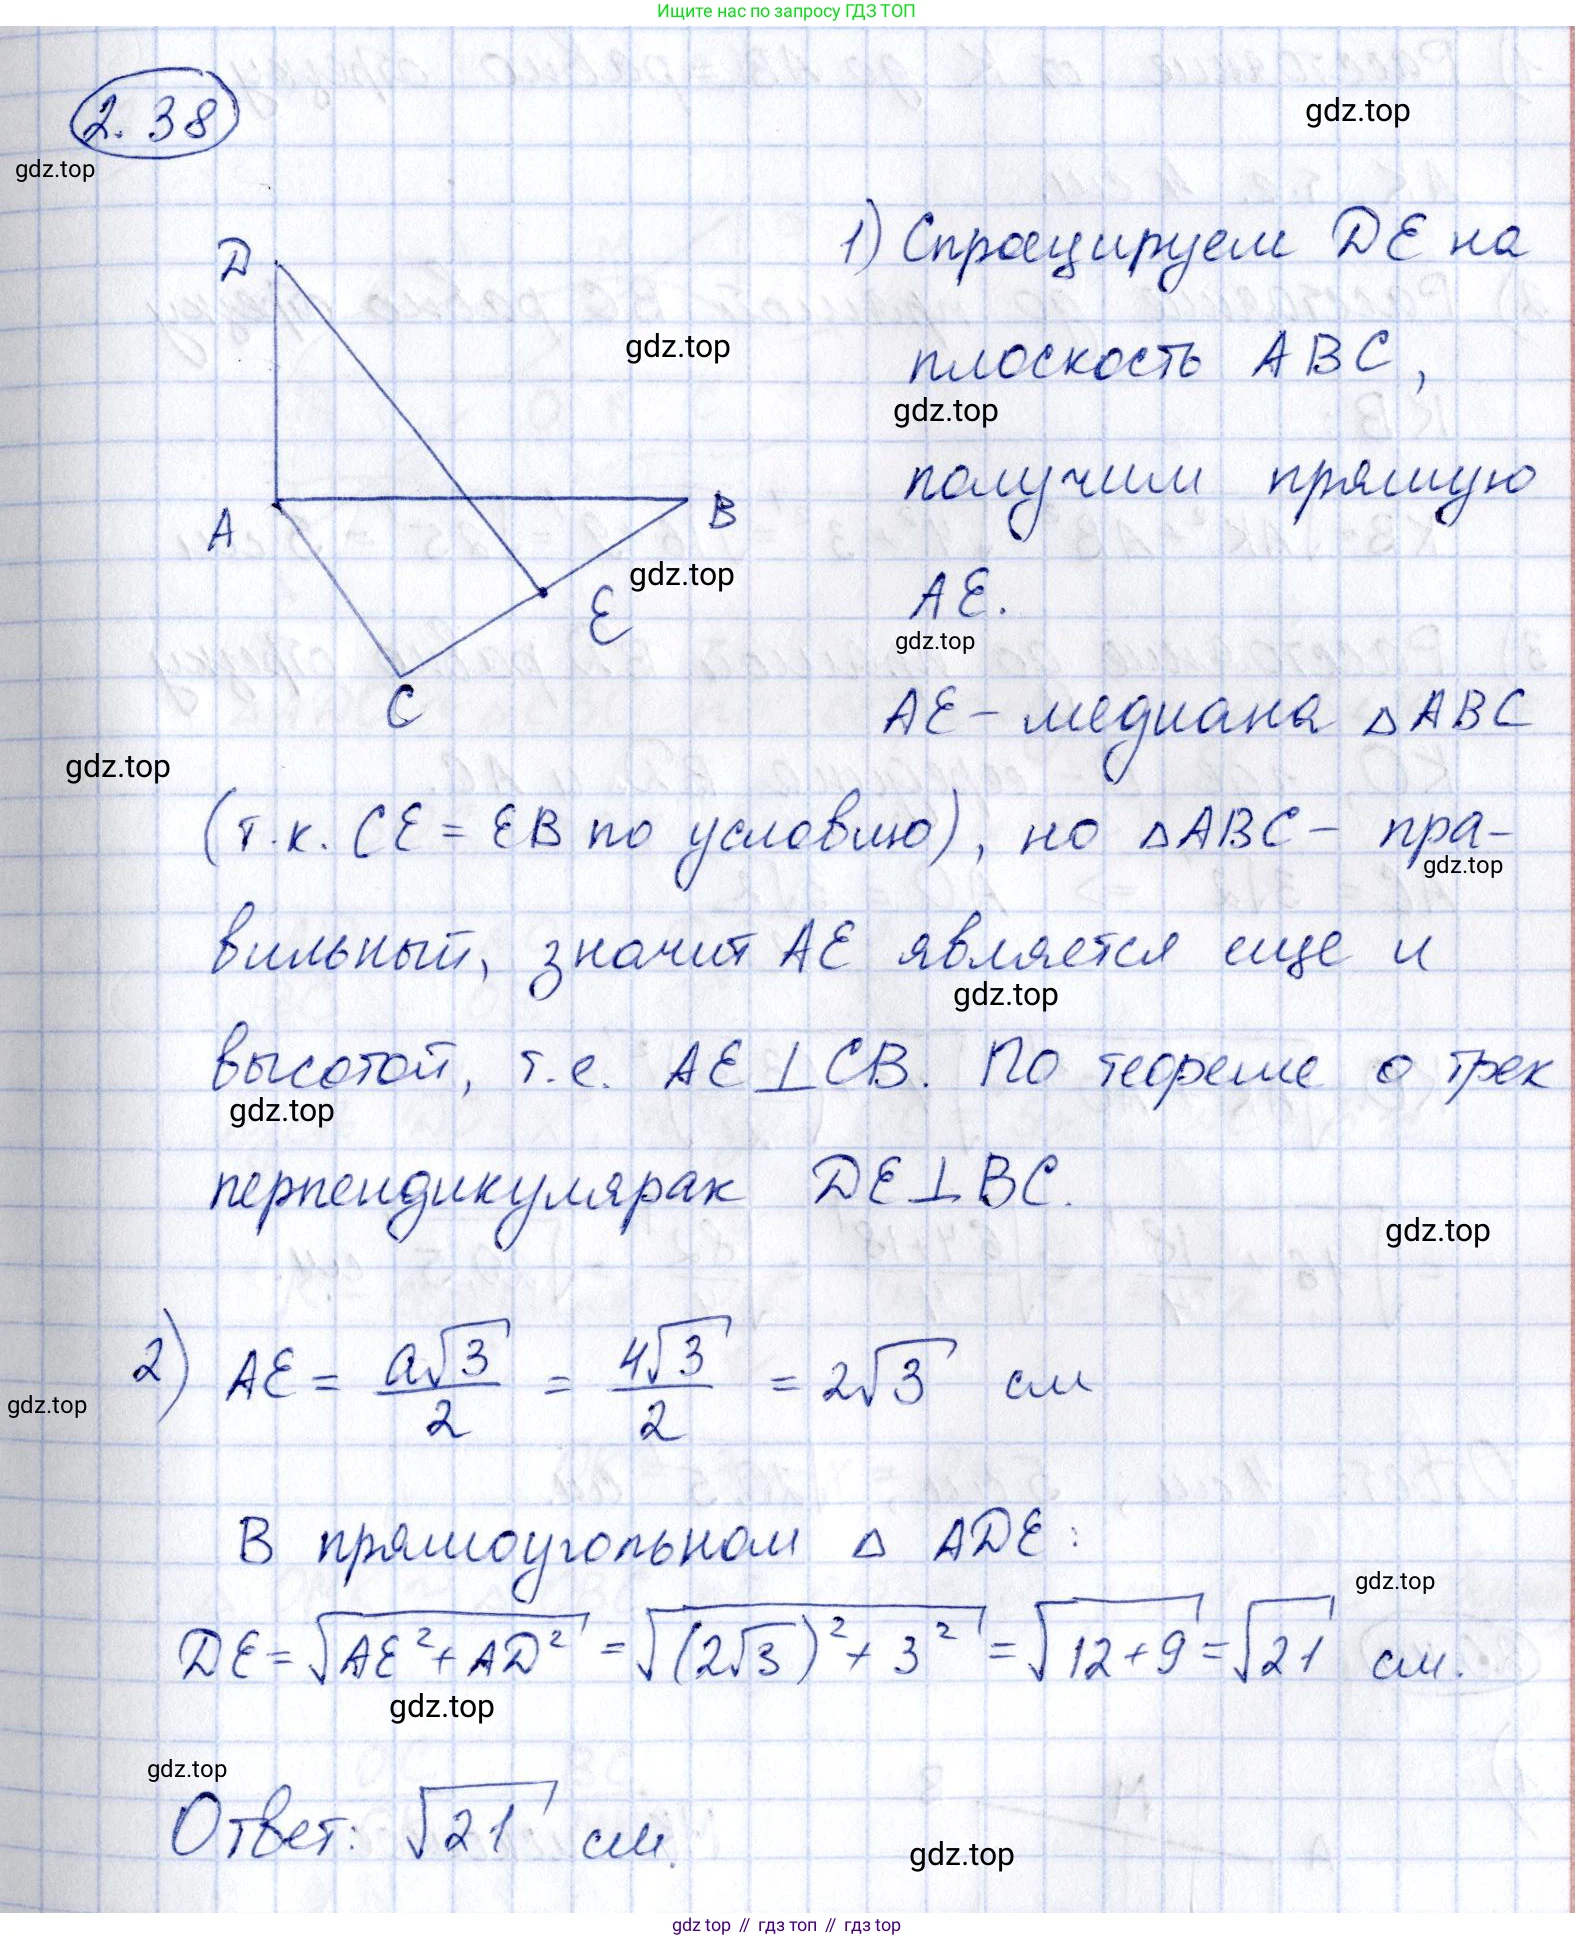 Ищите нас по запросу ГДЗ ТОП
2.38
gdz.top
gdz.top
D
1) Спроецируем DE на
gdz.top
плоскость ABC,
gdz.top
получим прямую
A
B
gdz.top
E
AE.
gdz.top
C
AE – медиана △ABC
gdz.top
(т.к. CE = EB по условию), но △ABC – пра-
gdz.top
вильный, значит AE является еще и
gdz.top
высотой, т.е. AE⊥CB. По теореме о трех
gdz.top
перпендикулярах DE⊥BC.
gdz.top
2) AE = a√3/2 = 4√3/2 = 2√3 см
gdz.top
В прямоугольном △ ADE:
gdz.top
DE = √(AE²+AD²) = √((2√3)²+3²) = √(12+9) = √21 см.
gdz.top
gdz.top
Ответ: √21 см.
gdz.top
gdz top // гдз топ // гдз top